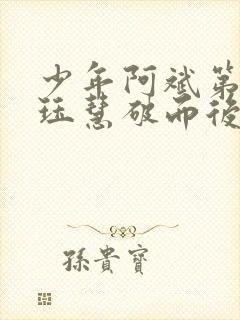 少年阿斌第
珏慧破而後
孫貴寶